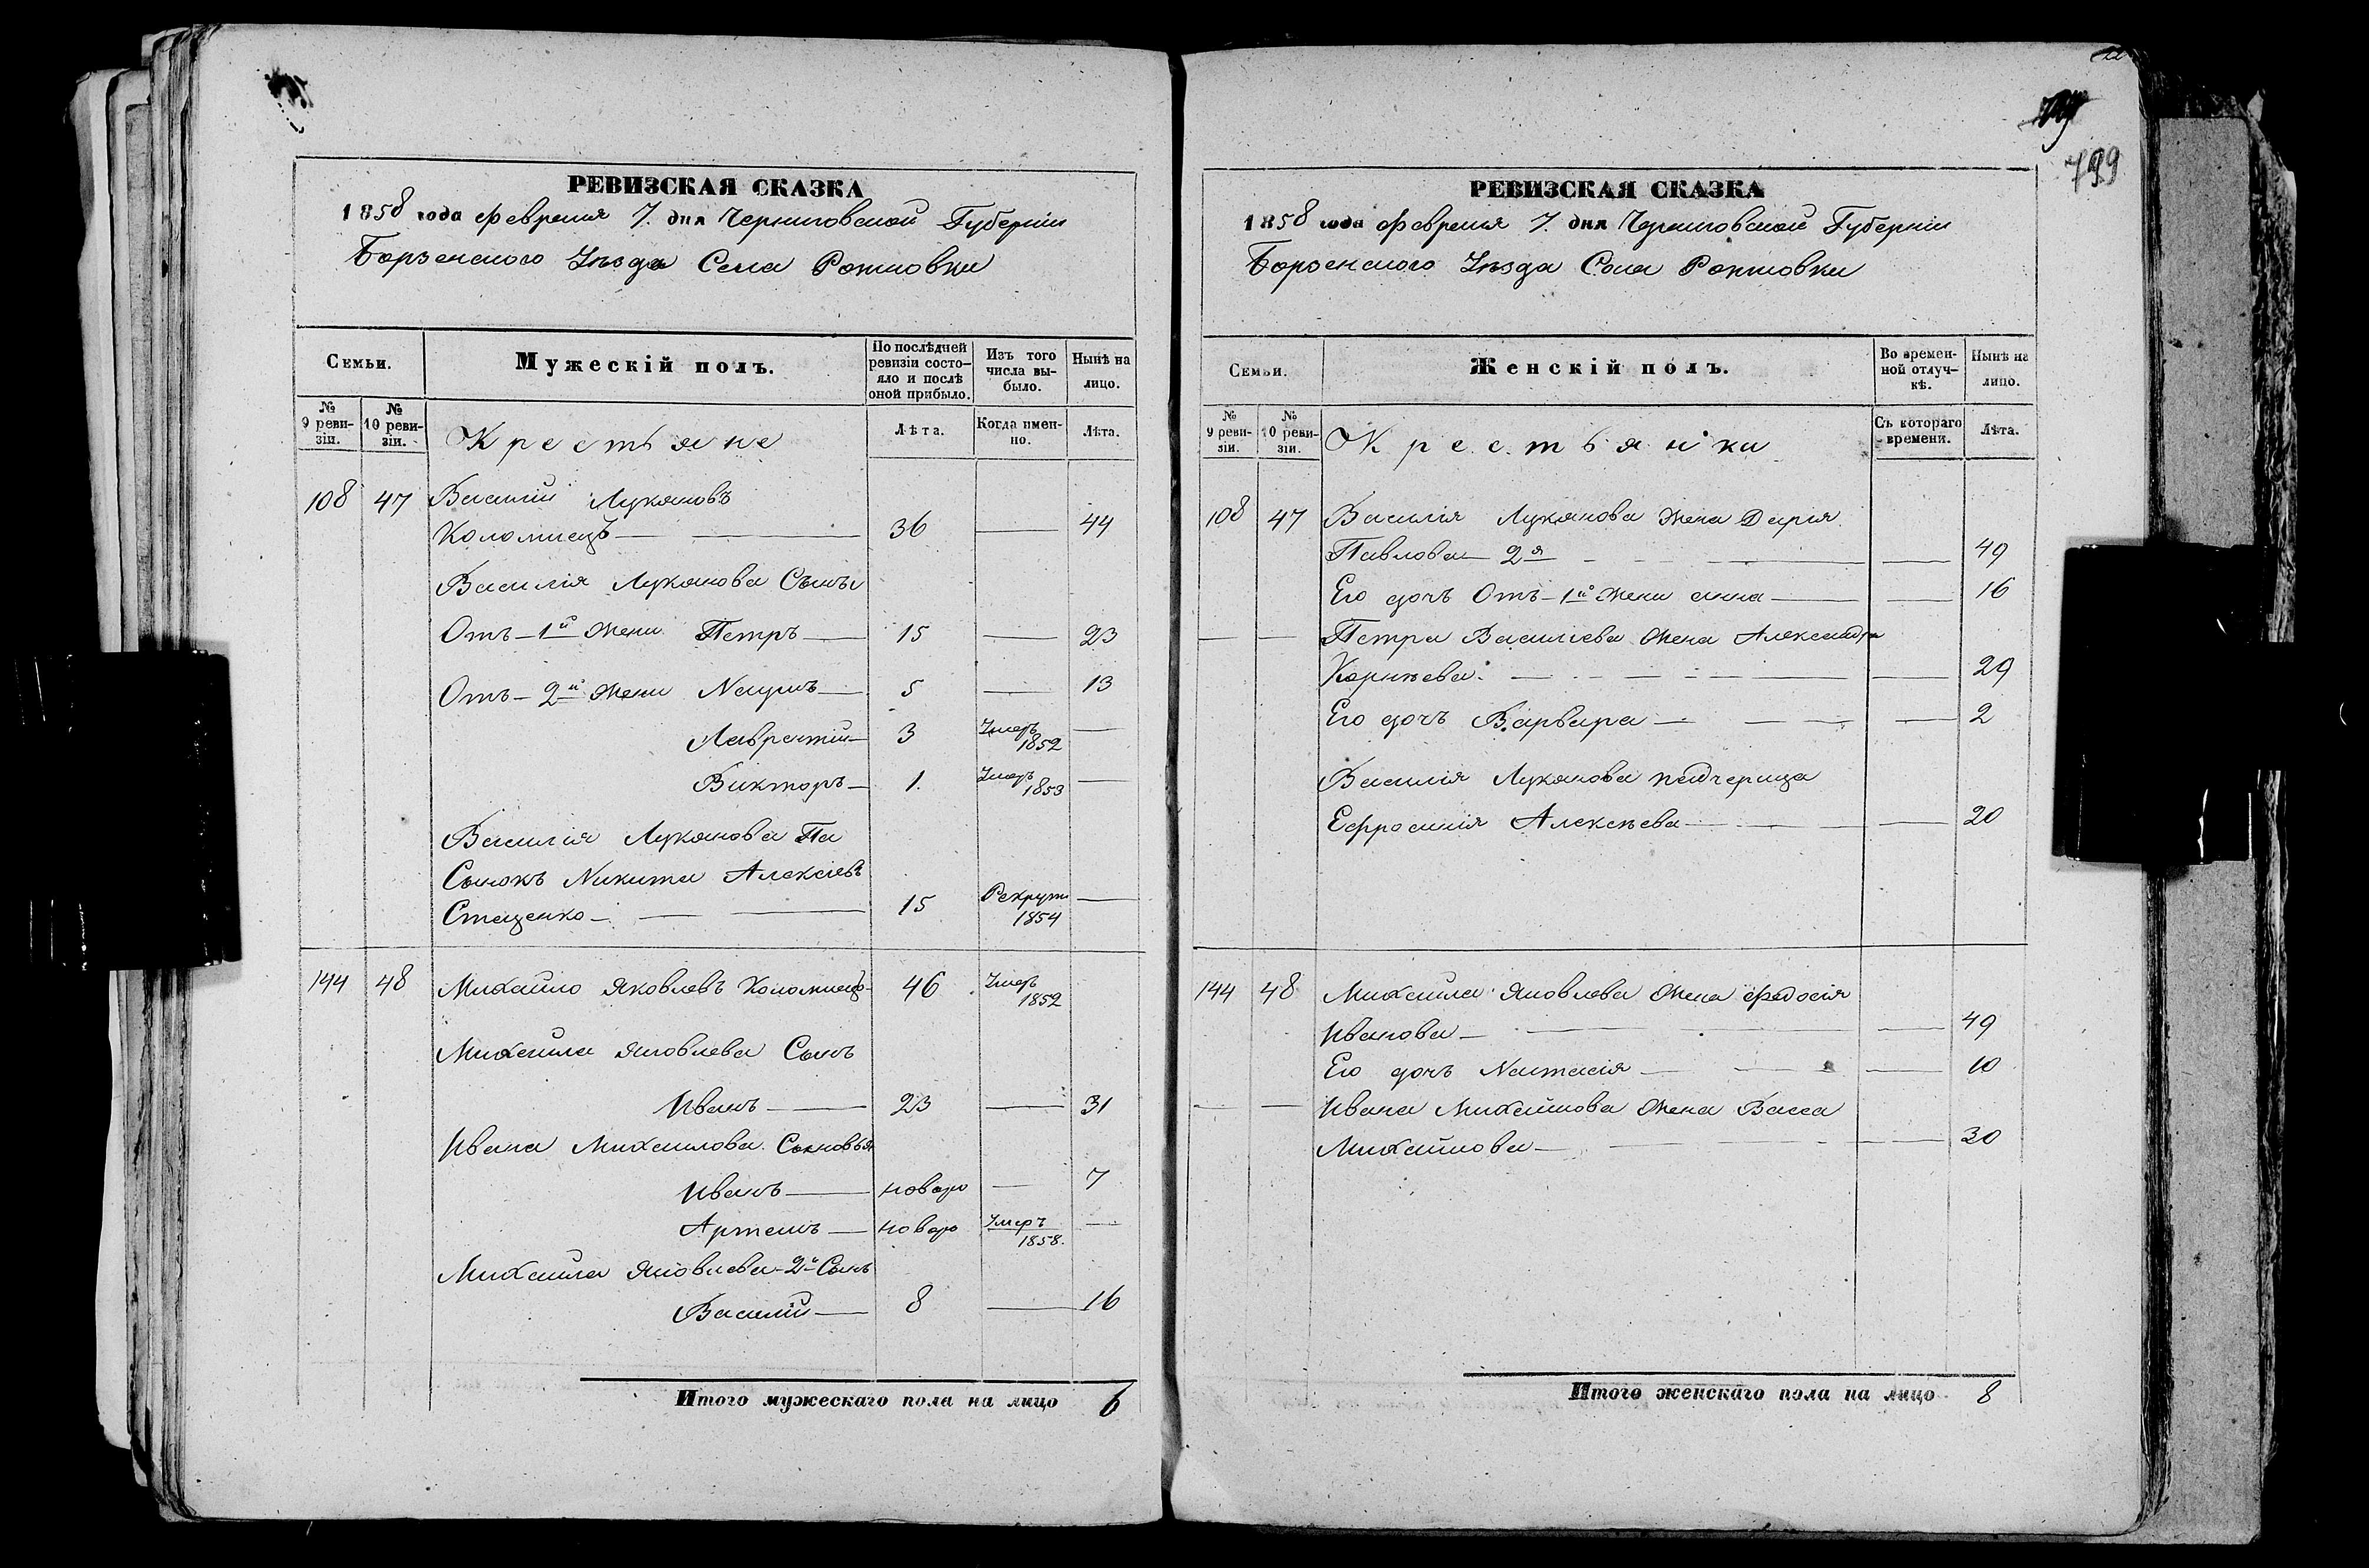 РЕВИЗСКАЯ СКАЗКА
1858 года Февраля 7. дня Черниговской Губерніи
Борзенского Уѣзда Села
Семьи.
Мужескій полъ.
По послѣдней ревизіи состояло и послѣ оной прибыло.
Изъ того числа выбыло.
Нынѣ на лицо.
№ 9 ревизіи.
№ 10 ревизіи.
Крестьяне
Лѣта.
Когда именно.
Лѣта.
108 47 Василій Лукяновъ
Коломиецъ — 36 — 44
Василія Лукянова Сынъ
Отъ 1й жени Петръ — 15 — 23
Отъ 2й жени Наумъ — 5 — 13
Лаврентій — 3 Умеръ 1852 —
Викторъ — 1. Умеръ 1853 —
Василія Лукянова Па
Сынокъ Никита Алексѣевъ
Стаценко — 15 Рекрут 1854 —
144 48 Михайло Яковлевъ Коломиецъ 46 Умеръ 1852
Михаила Яковлева Сынъ
Иванъ — 23 — 31
Ивана Михаилова Сыновья
Иванъ — новоро — 7
Артемъ — новоро Умеръ 1858. —
Михаила Яковлева 2й Сынъ
Василій — 8 — 16
Итого мужескаго пола на лицо 6
799
РЕВИЗСКАЯ СКАЗКА
1858 года Февраля 7. дня Черниговской Губерніи
Борзенского Уѣзда Села
Семьи.
Женскій полъ.
Во временной отлучкѣ.
Нынѣ на лицо.
№ 9 ревизіи.
№ 10 ревизіи.
Крестьянки
Съ котораго времени.
Лѣта.
108 47 Василія Лукянова жена Дарія
Павлова 2я — — 49
Его дочъ Отъ 1й жени Анна — — 16
— — Петра Василіева жена Александра
Корнѣева — — 29
Его дочъ Варвара — — 2
Василія Лукянова падчерица
Ефросинія Алексѣева — — 20
144 48 Михаила Яковлева жена Федосія
Иванова — — 49
Его дочъ Настасія — — 10
— — Ивана Михайлова жена Васса
Михайлова — — 30
Итого женскаго пола на лицо 8